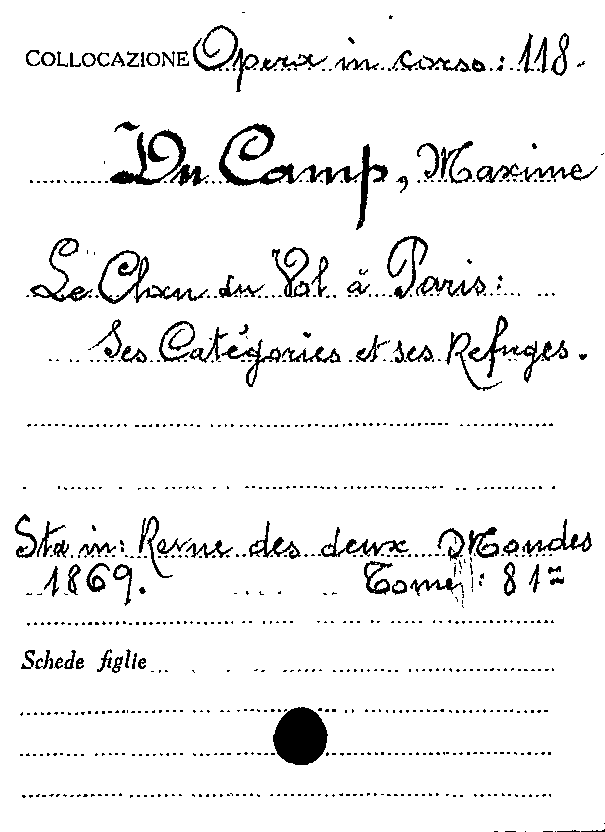 COLLOCAZIONE Opera in corso: 118.
Du Camp, Maxime
Le Clan du Vol à Paris:
Ses Catégories et ses Refuges.
Sta in: Revue des deux Mondes
1869. Tome: 81
Schede figlie